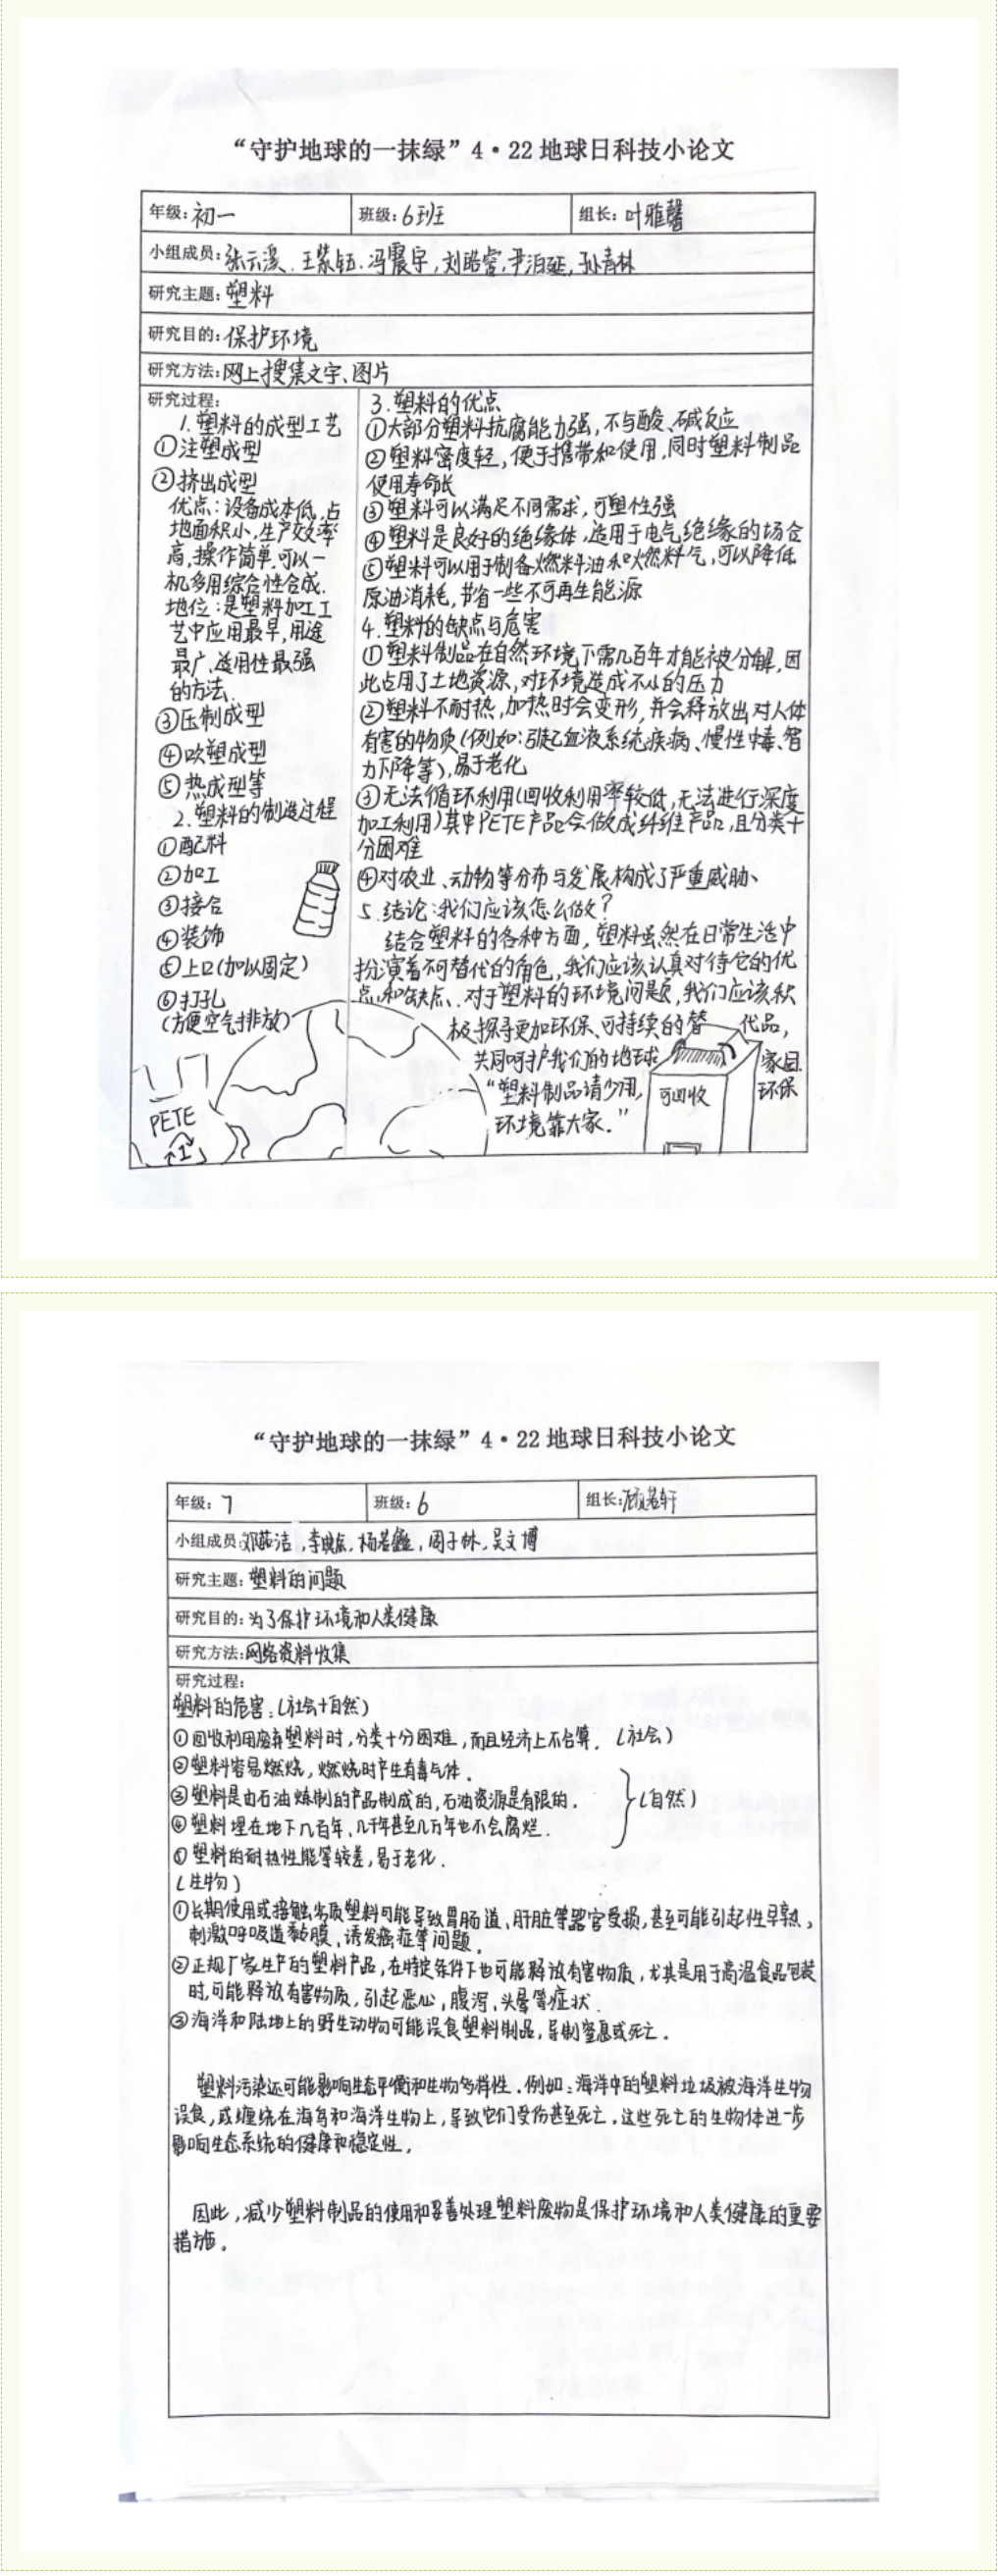 “守护地球的一抹绿”4·22地球日科技小论文
年级：初一 班级：6班 组长：叶雅馨
小组成员：张云溪、王紫钰、冯震宇，刘昭睿，尹泊延，孙青林
研究主题：塑料
研究目的：保护环境
研究方法：网上搜集文字、图片
研究过程：
1.塑料的成型工艺
①注塑成型
②挤出成型
优点：设备成本低，占
地面积小，生产效率
高，操作简单，可以一
机多用综合性合成.
地位：是塑料加工工
艺中应用最早，用途
最广、适用性最强
的方法.
③压制成型
④吹塑成型
⑤热成型等
2.塑料的制造过程
①配料
②加工
③接合
④装饰
⑤上口(加以固定)
⑥打孔
(方便空气排放)
PETE
1
3.塑料的优点
①大部分塑料抗腐能力强，不与酸、碱反应
②塑料密度轻，便于携带和使用，同时塑料制品
使用寿命长
③塑料可以满足不同需求，可塑性强
④塑料是良好的绝缘体，适用于电气绝缘的场合
⑤塑料可以用于制备燃料油和燃料气，可以降低
原油消耗，节省一些不可再生能源
4.塑料的缺点与危害
①塑料制品在自然环境下需几百年才能被分解，因
此占用了土地资源，对环境造成不小的压力
②塑料不耐热，加热时会变形，并会释放出对人体
有害的物质(例如：引起血液系统疾病、慢性中毒、智
力下降等)，易于老化
③无法循环利用(回收利用率较低，无法进行深度
加工利用)其中PETE产品会做成纤维产品，且分类十
分困难
④对农业、动物等分布与发展构成了严重威胁、
5.结论：我们应该怎么做？
结合塑料的各种方面，塑料虽然在日常生活中
扮演着不可替代的角色，我们应该认真对待它的优
点和缺点.对于塑料的环境问题，我们应该积
极探寻更加环保、可持续的替代品，
共同呵护我们的地球家园.
“塑料制品请少用，环保
环境靠大家.”
可回收
“守护地球的一抹绿”4·22地球日科技小论文
年级：7 班级：6 组长：顾若轩
小组成员：邓茹洁，李，杨若鑫，周子林，吴文博
研究主题：塑料的问题
研究目的：为了保护环境和人类健康
研究方法：网络资料收集
研究过程：
塑料的危害：(社会+自然)
①回收利用废弃塑料时，分类十分困难，而且经济上不合算. (社会)
②塑料容易燃烧，燃烧时产生有毒气体.
③塑料是由石油炼制的产品制成的，石油资源是有限的. (自然)
④塑料埋在地下几百年、几千年甚至几万年也不会腐烂.
⑤塑料的耐热性能等较差，易于老化.
(生物)
①长期使用或接触劣质塑料可能导致胃肠道、肝脏等器官受损，甚至可能引起性早熟、
刺激呼吸道黏膜、诱发癌症等问题。
②正规厂家生产的塑料产品，在特定条件下也可能释放有害物质，尤其是用于高温食品包装
时，可能释放有害物质，引起恶心，腹泻，头晕等症状.
③海洋和陆地上的野生动物可能误食塑料制品，导制窒息或死亡.
塑料污染还可能影响生态平衡和生物多样性.例如：海洋中的塑料垃圾被海洋生物
误食，或缠绕在海鸟和海洋生物上，导致它们受伤甚至死亡.这些死亡的生物体进一步
影响生态系统的健康和稳定性.
因此，减少塑料制品的使用和妥善处理塑料废物是保护环境和人类健康的重要
措施。